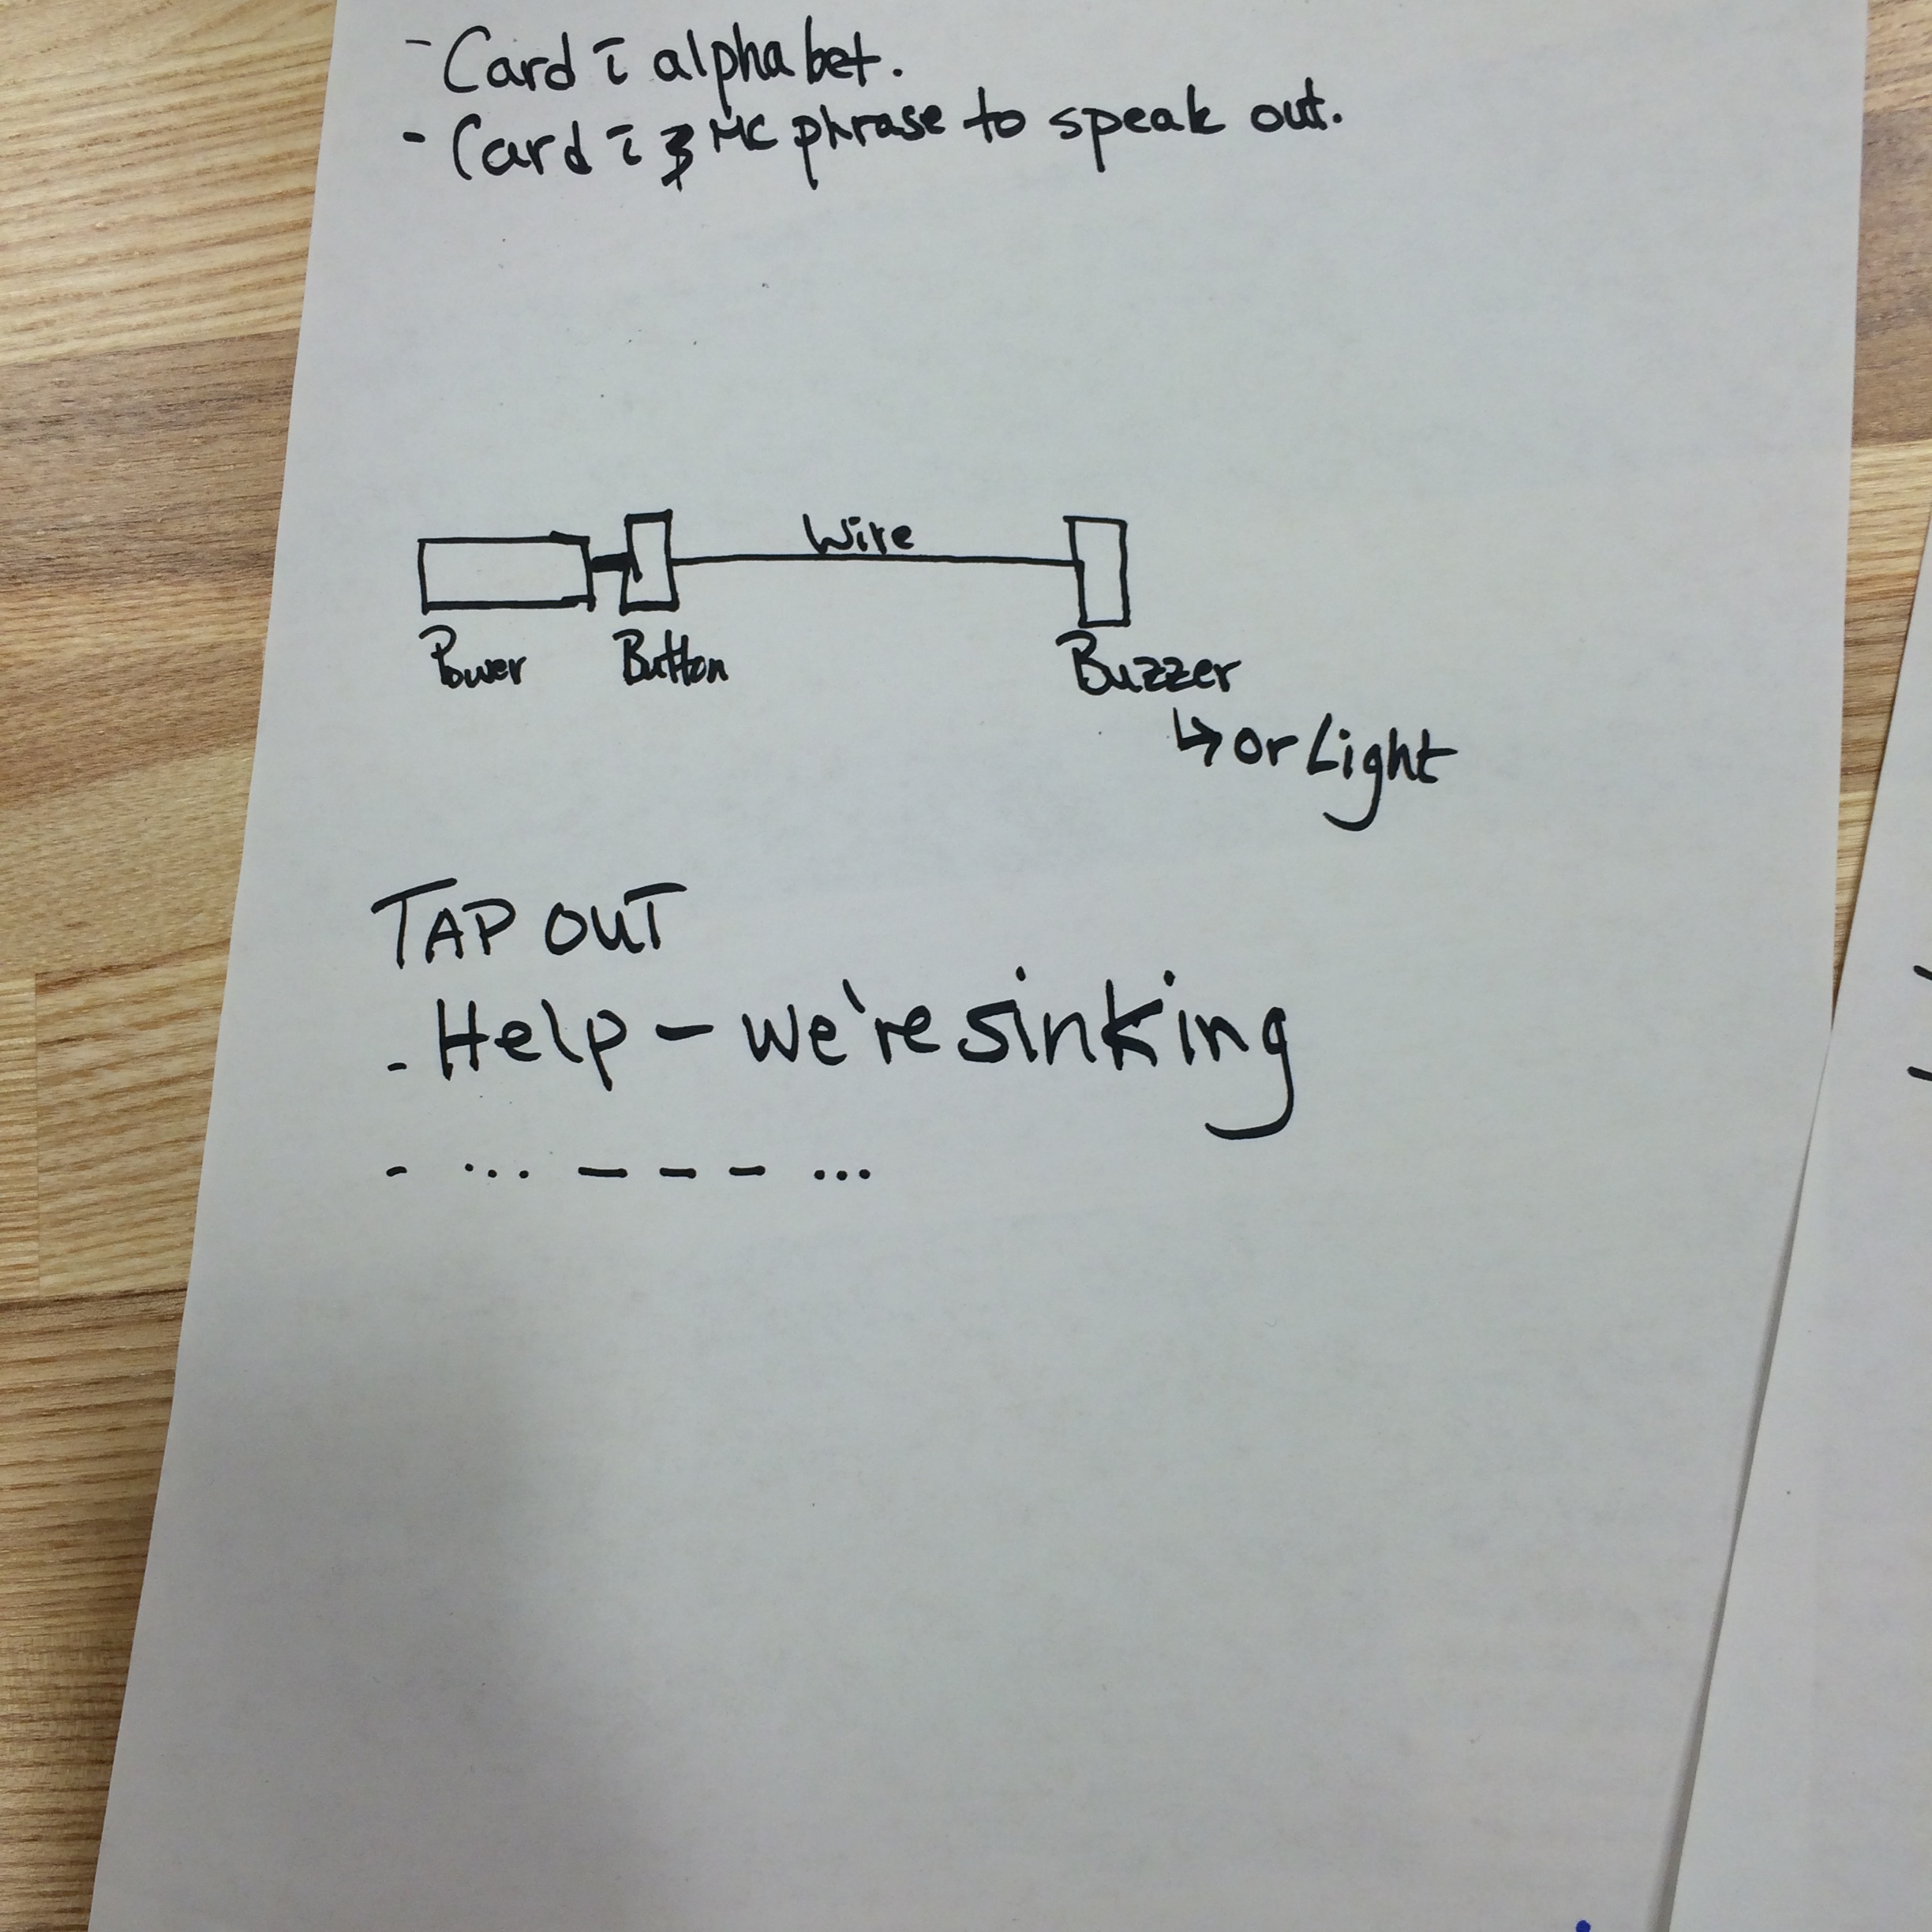 - Card c̄ alphabet.
- Card c̄ MC phrase to speak out.
Wire
Power Button Buzzer
↳ or Light
TAP OUT
- Help - we're sinking
- ... — — — ...